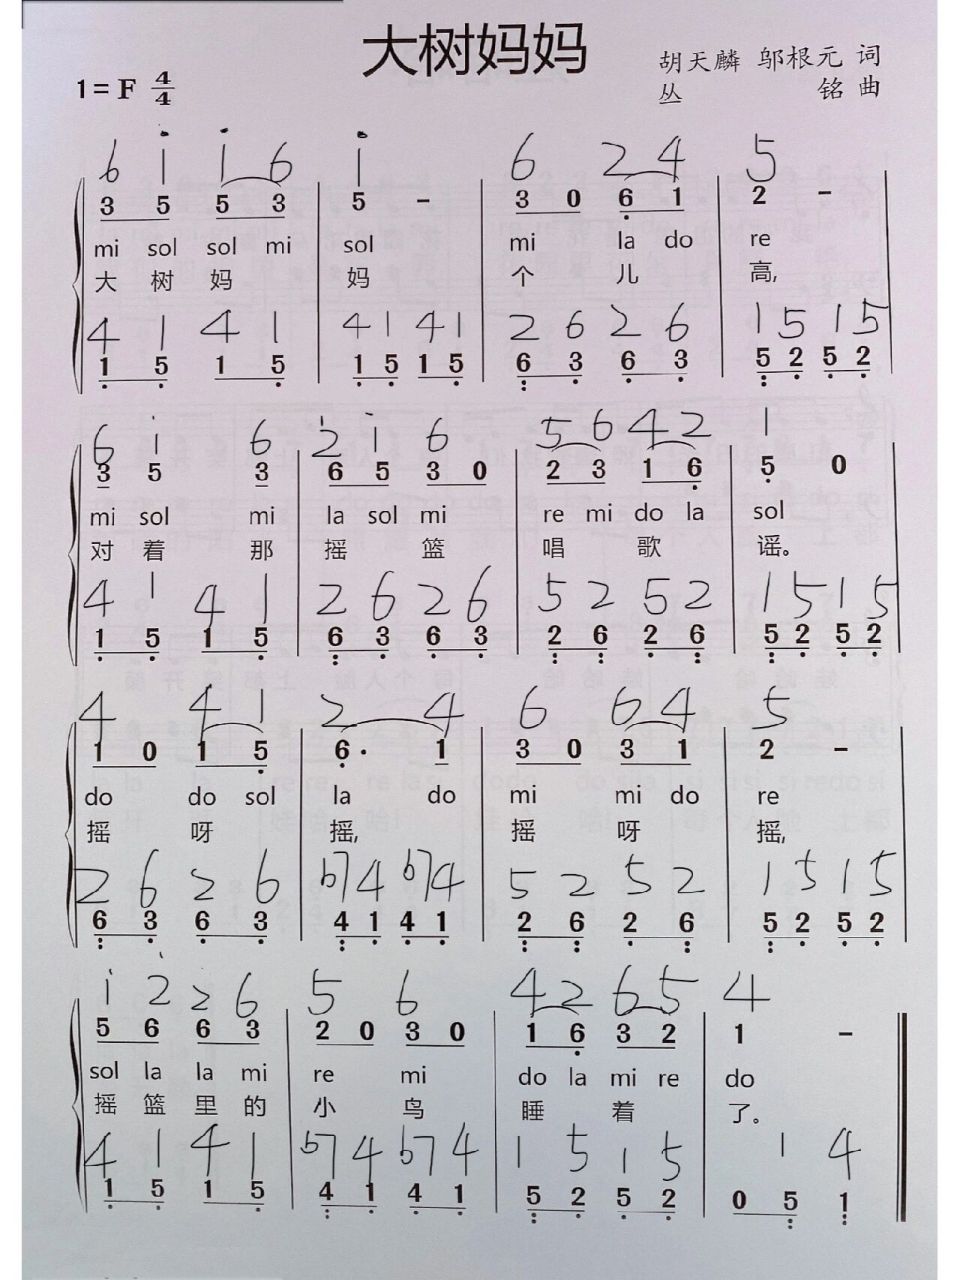 大树妈妈
胡天麟 邬根元 词
1=F 4/4
丛 铭 曲
6 i i 6 i 6 2 4 5
3 5 5 3 5 - 3 0 6 1 2 -
mi sol sol mi sol mi la do re
大 树 妈 妈 个 儿 高,
4 1 4 1 4 1 4 1 2 6 2 6 1 5 1 5
1 5 1 5 1 5 1 5 6 3 6 3 5 2 5 2
6 i 6 2 i 6 5 6 4 2 1
3 5 3 6 5 3 0 2 3 1 6 5 0
mi sol mi la sol mi re mi do la sol
对 着 那 摇 篮 唱 歌 谣。
4 1 4 1 2 6 2 6 5 2 5 2 1 5 1 5
1 5 1 5 6 3 6 3 2 6 2 6 5 2 5 2
4 4 1 2 4 6 6 4 5
1 0 1 5 6· 1 3 0 3 1 2 -
do do sol la do mi mi do re
摇 呀 摇, 摇 呀 摇,
2 6 2 6 b7 4 b7 4 5 2 5 2 1 5 1 5
6 3 6 3 4 1 4 1 2 6 2 6 5 2 5 2
i 2 2 6 5 6 4 2 6 5 4
5 6 6 3 2 0 3 0 1 6 3 2 1 -
sol la la mi re mi do la mi re do
摇 篮 里 的 小 鸟 睡 着 了。
4 1 4 1 b7 4 b7 4 1 5 1 5 1 4
1 5 1 5 4 1 4 1 5 2 5 2 0 5 1